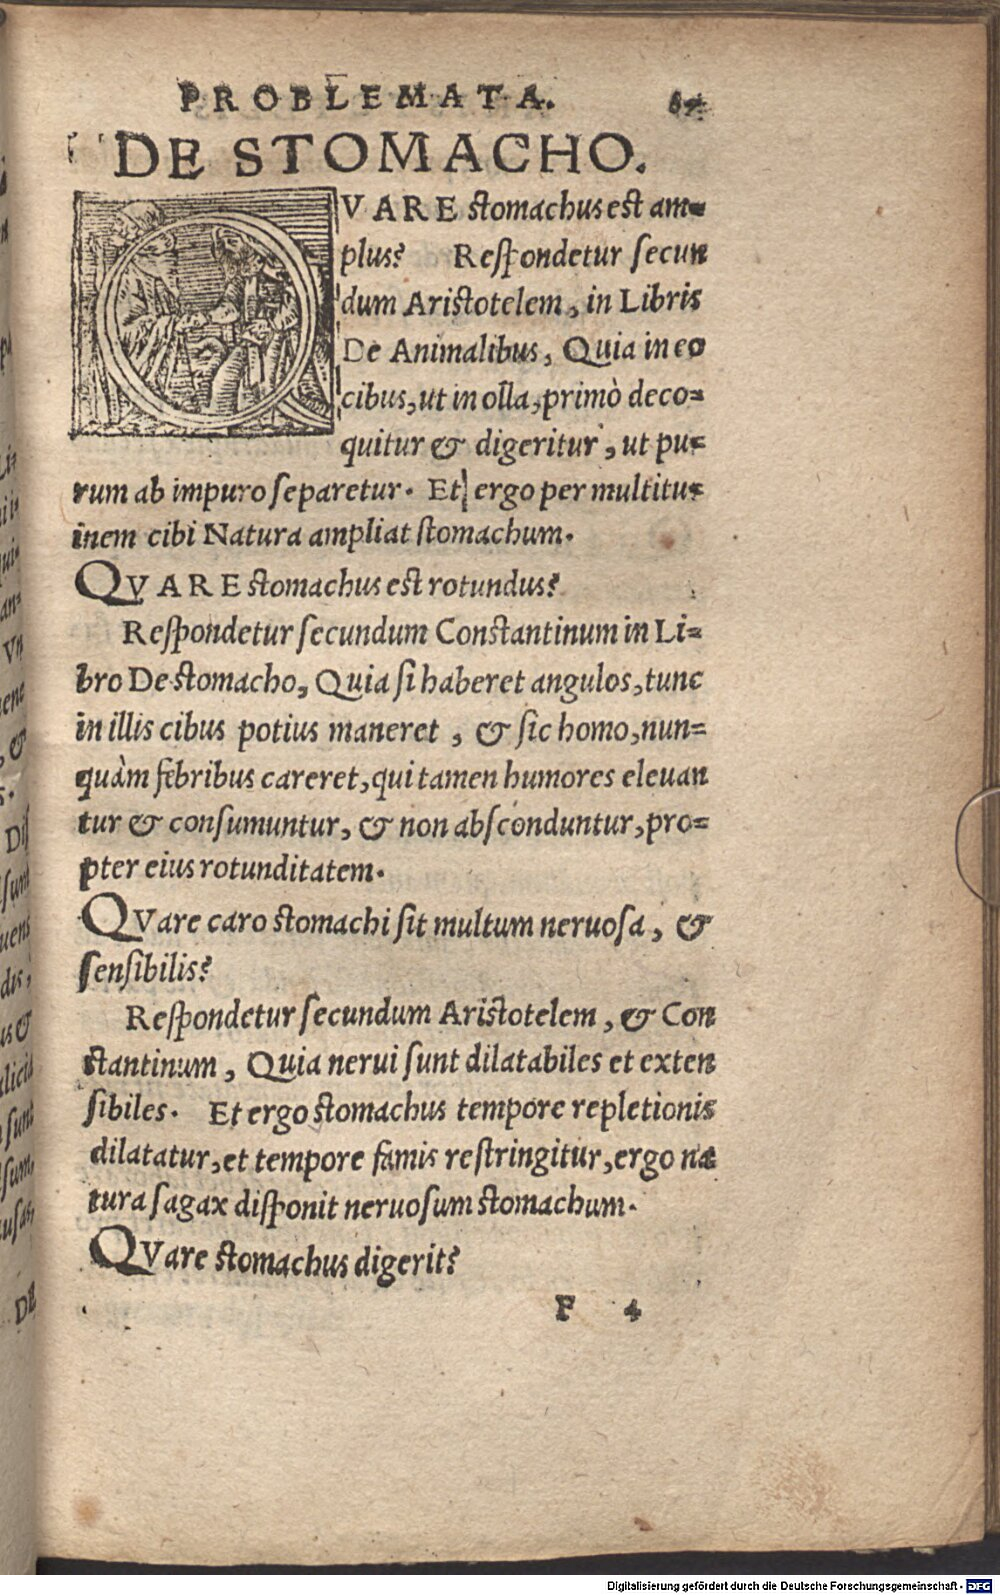 PROBLEMATA. 87
DE STOMACHO.
QVARE stomachus est am=
plus? Respondetur secun
dum Aristotelem, in Libris
De Animalibus, Quia in eo
cibus, ut in olla, primò deco=
quitur & digeritur, ut pu=
rum ab impuro separetur. Et ergo per multitu=
inem cibi Natura ampliat stomachum.
QVARE stomachus est rotundus?
Respondetur secundum Constantinum in Li=
bro De stomacho, Quia si haberet angulos, tunc
in illis cibus potius maneret, & sic homo, nun=
quàm febribus careret, qui tamen humores eleuan
tur & consumuntur, & non absconduntur, pro=
pter eius rotunditatem.
QVare caro stomachi sit multum neruosa, &
sensibilis?
Respondetur secundum Aristotelem, & Con
stantinum, Quia nerui sunt dilatabiles et exten
sibiles. Et ergo stomachus tempore repletionis
dilatatur, et tempore famis restringitur, ergo na
tura sagax disponit neruosum stomachum.
QVare stomachus digerit?
F 4
Digitalisierung gefördert durch die Deutsche Forschungsgemeinschaft - DFG